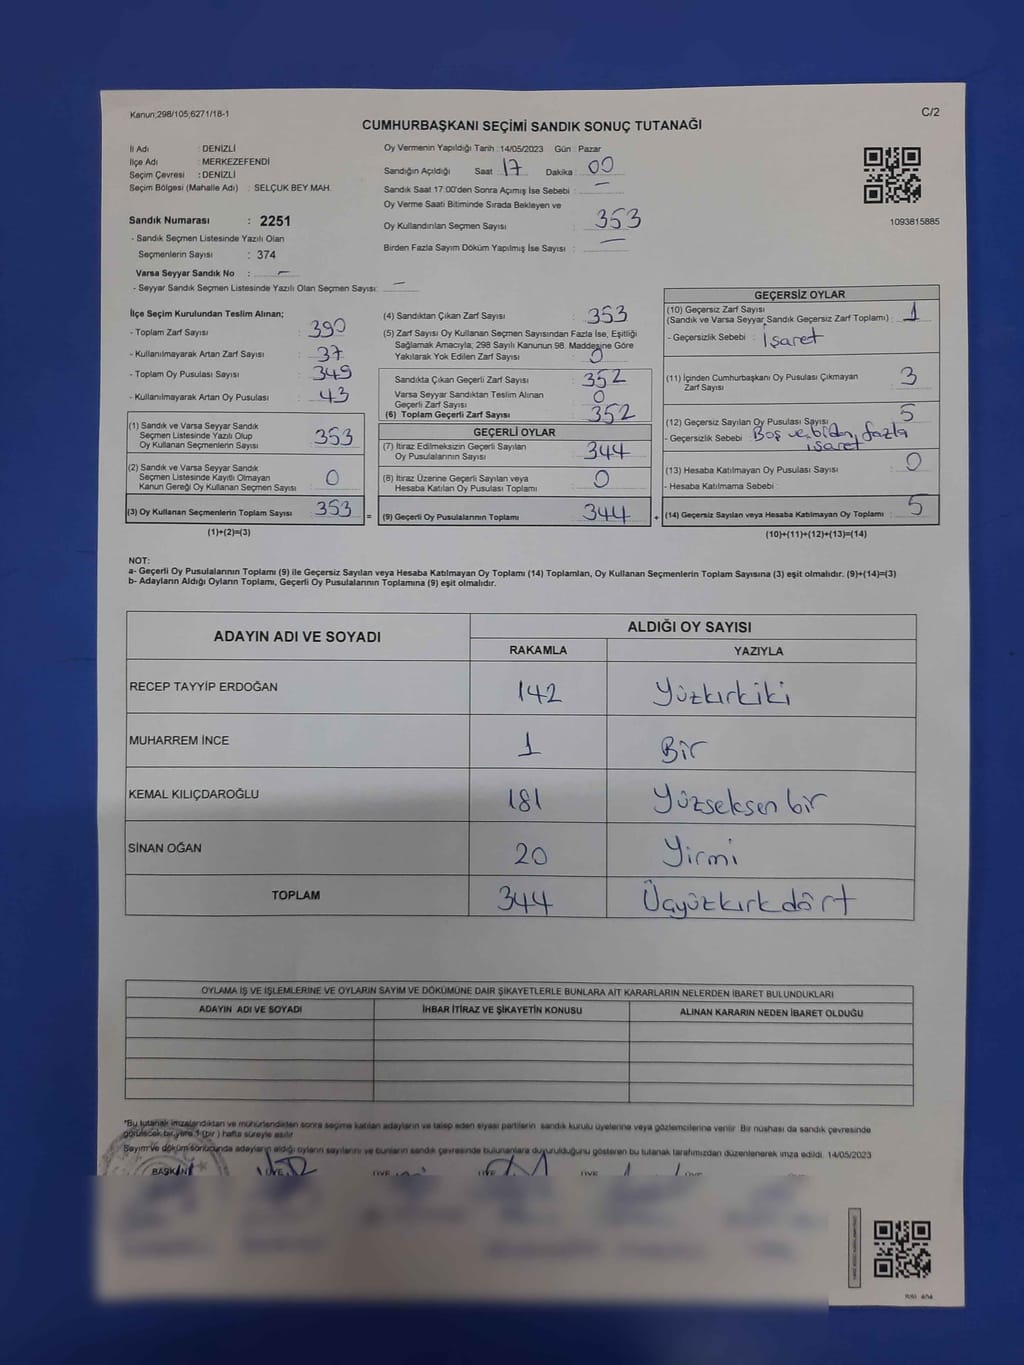 Kanun;298/105;6271/18-1
C/2
CUMHURBAŞKANI SEÇİMİ SANDIK SONUÇ TUTANAĞI
İl Adı : DENİZLİ
İlçe Adı : MERKEZEFENDİ
Seçim Çevresi : DENİZLİ
Seçim Bölgesi (Mahalle Adı) : SELÇUK BEY MAH.
Sandık Numarası : 2251
- Sandık Seçmen Listesinde Yazılı Olan
Seçmenlerin Sayısı : 374
Varsa Seyyar Sandık No : –
- Seyyar Sandık Seçmen Listesinde Yazılı Olan Seçmen Sayısı: –
Oy Vermenin Yapıldığı Tarih : 14/05/2023 Gün : Pazar
Sandığın Açıldığı Saat : 17 Dakika : 00
Sandık Saat 17:00'den Sonra Açımış İse Sebebi : –
Oy Verme Saati Bitiminde Sırada Bekleyen ve
Oy Kullandırılan Seçmen Sayısı : 353
Birden Fazla Sayım Döküm Yapılmış İse Sayısı : –
1093815885
İlçe Seçim Kurulundan Teslim Alınan;
- Toplam Zarf Sayısı : 390
- Kullanılmayarak Artan Zarf Sayısı : 37
- Toplam Oy Pusulası Sayısı : 349
- Kullanılmayarak Artan Oy Pusulası : 43
(1) Sandık ve Varsa Seyyar Sandık
Seçmen Listesinde Yazılı Olup
Oy Kullanan Seçmenlerin Sayısı : 353
(2) Sandık ve Varsa Seyyar Sandık
Seçmen Listesinde Kayıtlı Olmayan
Kanun Gereği Oy Kullanan Seçmen Sayısı : 0
(3) Oy Kullanan Seçmenlerin Toplam Sayısı : 353 =
(1)+(2)=(3)
(4) Sandıktan Çıkan Zarf Sayısı : 353
(5) Zarf Sayısı Oy Kullanan Seçmen Sayısından Fazla İse, Eşitliği
Sağlamak Amacıyla; 298 Sayılı Kanunun 98. Maddesine Göre
Yakılarak Yok Edilen Zarf Sayısı : 0
Sandıkta Çıkan Geçerli Zarf Sayısı : 352
Varsa Seyyar Sandıktan Teslim Alınan
Geçerli Zarf Sayısı : 0
(6) Toplam Geçerli Zarf Sayısı : 352
GEÇERLİ OYLAR
(7) İtiraz Edilmeksizin Geçerli Sayılan
Oy Pusulalarının Sayısı : 344
(8) İtiraz Üzerine Geçerli Sayılan veya
Hesaba Katılan Oy Pusulası Toplamı : 0
(9) Geçerli Oy Pusulalarının Toplamı : 344 +
GEÇERSİZ OYLAR
(10) Geçersiz Zarf Sayısı
(Sandık ve Varsa Seyyar Sandık Geçersiz Zarf Toplamı) : 1
- Geçersizlik Sebebi : İşaret
(11) İçinden Cumhurbaşkanı Oy Pusulası Çıkmayan
Zarf Sayısı : 3
(12) Geçersiz Sayılan Oy Pusulası Sayısı : 5
- Geçersizlik Sebebi : Boş ve birden fazla
işaret
(13) Hesaba Katılmayan Oy Pusulası Sayısı : 0
- Hesaba Katılmama Sebebi :
(14) Geçersiz Sayılan veya Hesaba Katılmayan Oy Toplamı : 5
(10)+(11)+(12)+(13)=(14)
NOT:
a- Geçerli Oy Pusulalarının Toplamı (9) ile Geçersiz Sayılan veya Hesaba Katılmayan Oy Toplamı (14) Toplamları, Oy Kullanan Seçmenlerin Toplam Sayısına (3) eşit olmalıdır. (9)+(14)=(3)
b- Adayların Aldığı Oyların Toplamı, Geçerli Oy Pusulalarının Toplamına (9) eşit olmalıdır.
ADAYIN ADI VE SOYADI
ALDIĞI OY SAYISI
RAKAMLA YAZIYLA
RECEP TAYYİP ERDOĞAN 142 Yüzkırkiki
MUHARREM İNCE 1 Bir
KEMAL KILIÇDAROĞLU 181 Yüzseksen bir
SİNAN OĞAN 20 Yirmi
TOPLAM 344 Üçyüzkırkdört
OYLAMA İŞ VE İŞLEMLERİNE VE OYLARIN SAYIM VE DÖKÜMÜNE DAİR ŞİKAYETLERLE BUNLARA AİT KARARLARIN NELERDEN İBARET BULUNDUKLARI
ADAYIN ADI VE SOYADI İHBAR İTİRAZ VE ŞİKAYETİN KONUSU ALINAN KARARIN NEDEN İBARET OLDUĞU
*Bu tutanak imzalandıktan ve mühürlendikten sonra seçime katılan adayların ve talep eden siyasi partilerin sandık kurulu üyelerine veya gözlemcilerine verilir. Bir nüshası da sandık çevresinde
görülecek bir yere 1 (bir) hafta süreyle asılır
Sayım ve döküm sonucunda adayların aldığı oyların sayılarını ve bunların sandık çevresinde bulunanlara duyurulduğunu gösteren bu tutanak tarafımızdan düzenlenerek imza edildi. 14/05/2023
BAŞKAN ÜYE ÜYE ÜYE ÜYE ÜYE